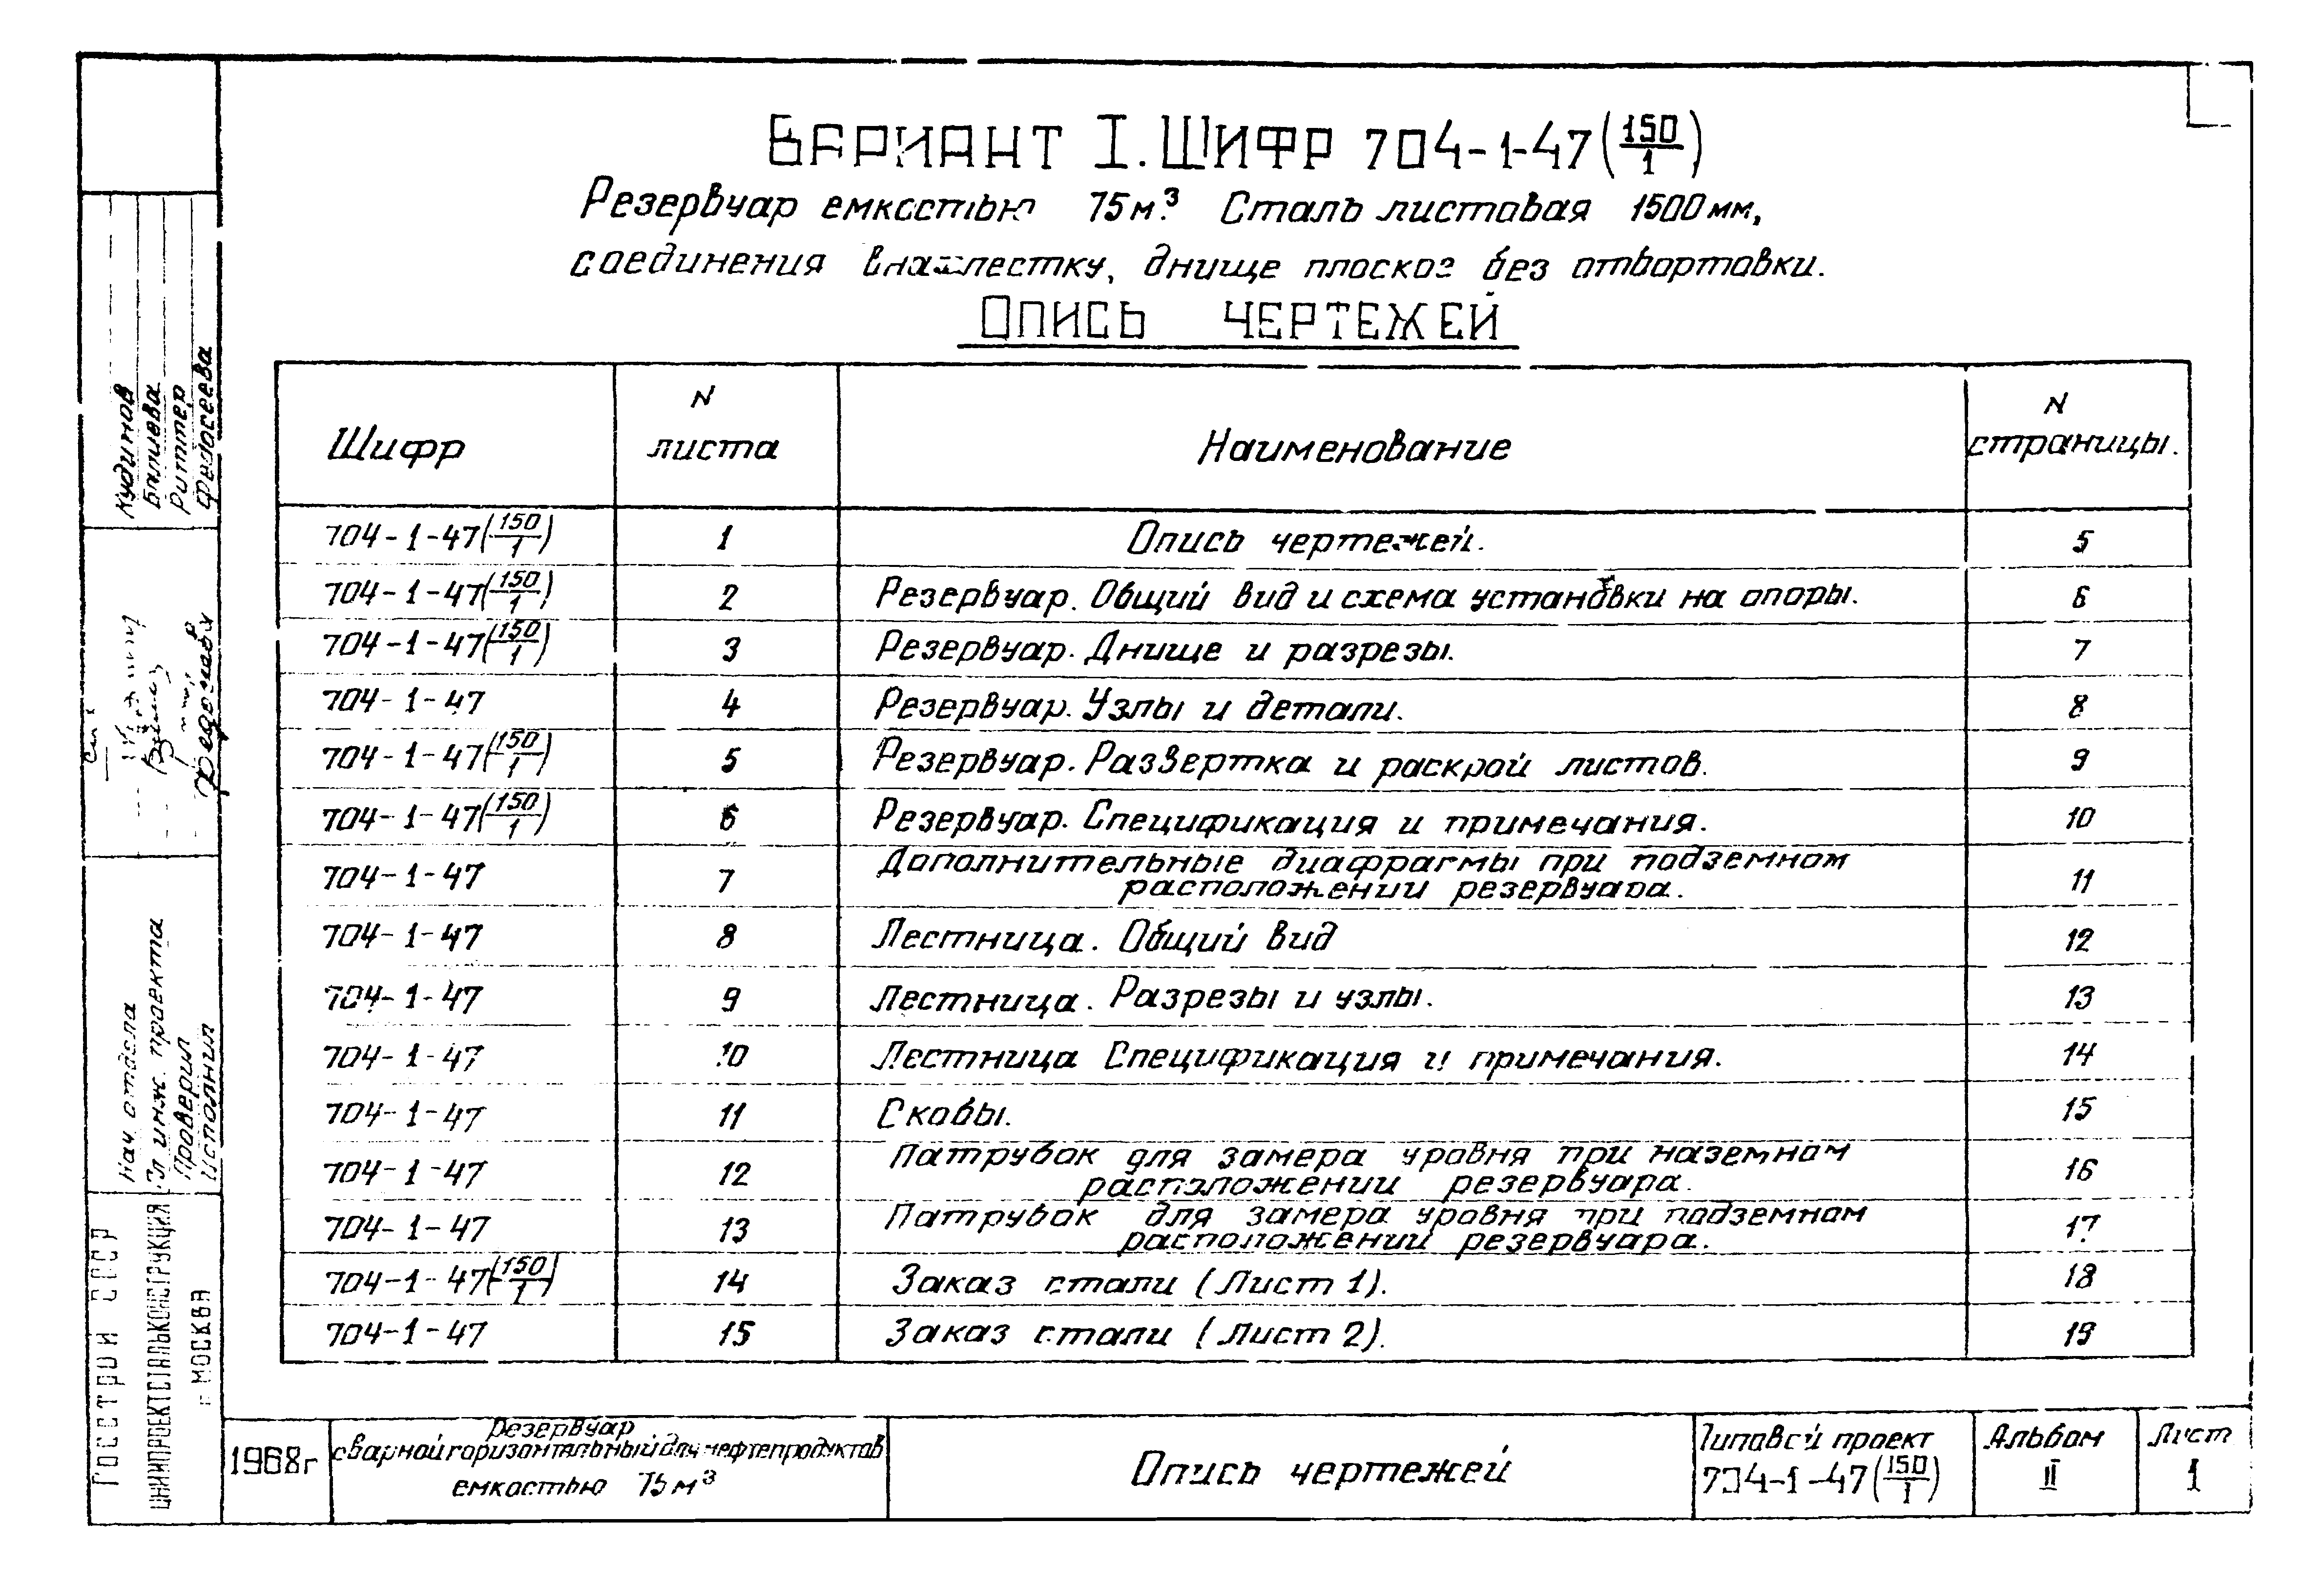 ВАРИАНТ I. ШИФР 704-1-47(150/1)
Резервуар емкостью 75м.³ Сталь листовая 1500мм,
соединения внахлестку, днище плоское без отбортовки.
ОПИСЬ ЧЕРТЕЖЕЙ
Шифр N листа Наименование N страницы.
704-1-47(150/1) 1 Опись чертежей. 5
704-1-47(150/1) 2 Резервуар. Общий вид и схема установки на опоры. 6
704-1-47(150/1) 3 Резервуар. Днище и разрезы. 7
704-1-47 4 Резервуар. Узлы и детали. 8
704-1-47(150/1) 5 Резервуар. Развертка и раскрой листов. 9
704-1-47(150/1) 6 Резервуар. Спецификация и примечания. 10
704-1-47 7 Дополнительные диафрагмы при подземном
расположении резервуара. 11
704-1-47 8 Лестница. Общий вид 12
704-1-47 9 Лестница. Разрезы и узлы. 13
704-1-47 10 Лестница Спецификация и примечания. 14
704-1-47 11 Скобы. 15
704-1-47 12 Патрубок для замера уровня при наземном
расположении резервуара. 16
704-1-47 13 Патрубок для замера уровня при подземном
расположении резервуара. 17
704-1-47(150/1) 14 Заказ стали (Лист 1). 18
704-1-47 15 Заказ стали (Лист 2). 19
1968г
Резервуар
сварной горизонтальный для нефтепродуктов
емкостью 75м³
Опись чертежей
Типовой проект
704-1-47(150/1)
Альбом
II
Лист
1
Госстрой СССР
ЦНИИПРОЕКТСТАЛЬКОНСТРУКЦИЯ
г. МОСКВА
Нач отдела Кудинов
Гл инж. проекта
Проверил Риттер
Исполнил Федосеева